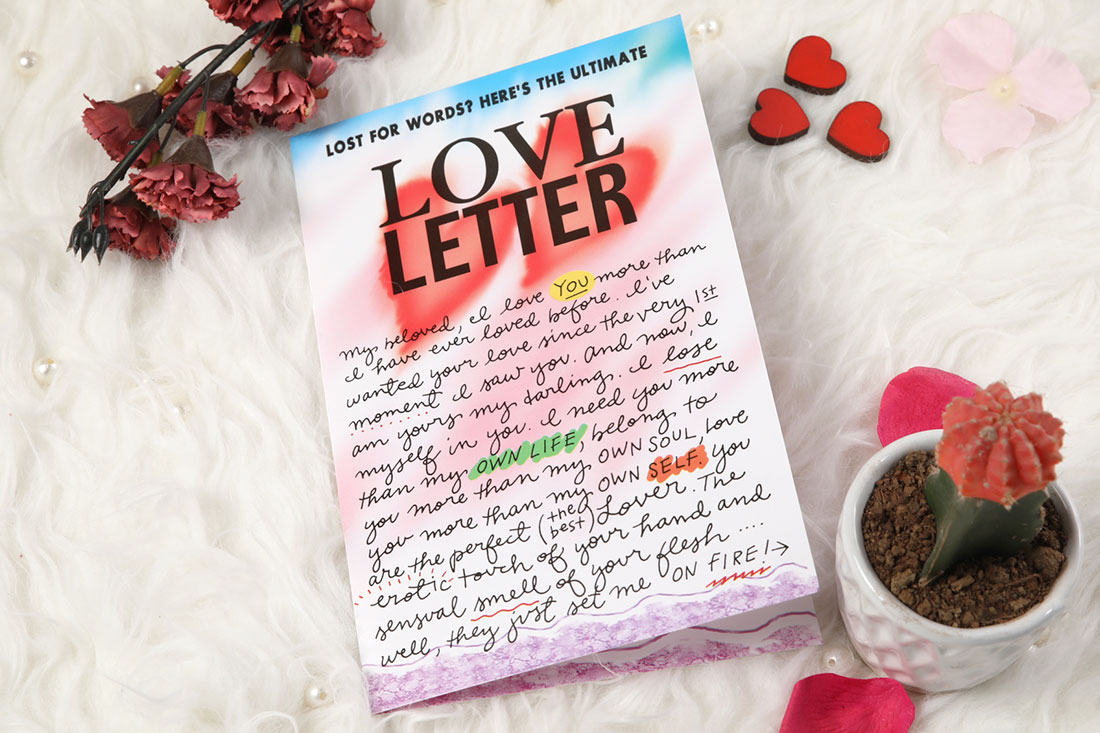 LOST FOR WORDS? HERE'S THE ULTIMATE
LOVE
LETTER
my beloved, I love YOU more than
I have ever loved before. I've
wanted your love since the very 1st
moment I saw you. and now, I
am yours my darling. I lose
myself in you. I need you more
than my OWN LIFE, belong to
you more than my OWN SOUL, love
you more than my OWN SELF, you
are the perfect (the best) Lover. The
erotic touch of your hand and
sensual smell of your flesh ....
well, they just set me ON FIRE!→